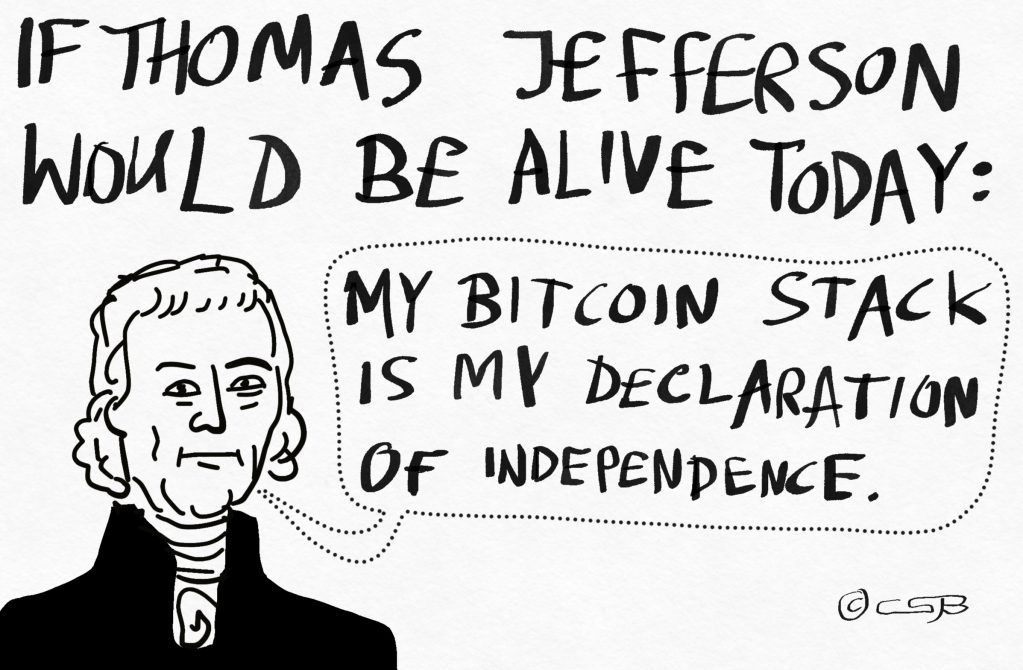 IF THOMAS JEFFERSON
WOULD BE ALIVE TODAY:
MY BITCOIN STACK
IS MY DECLARATION
OF INDEPENDENCE.
© CSJB